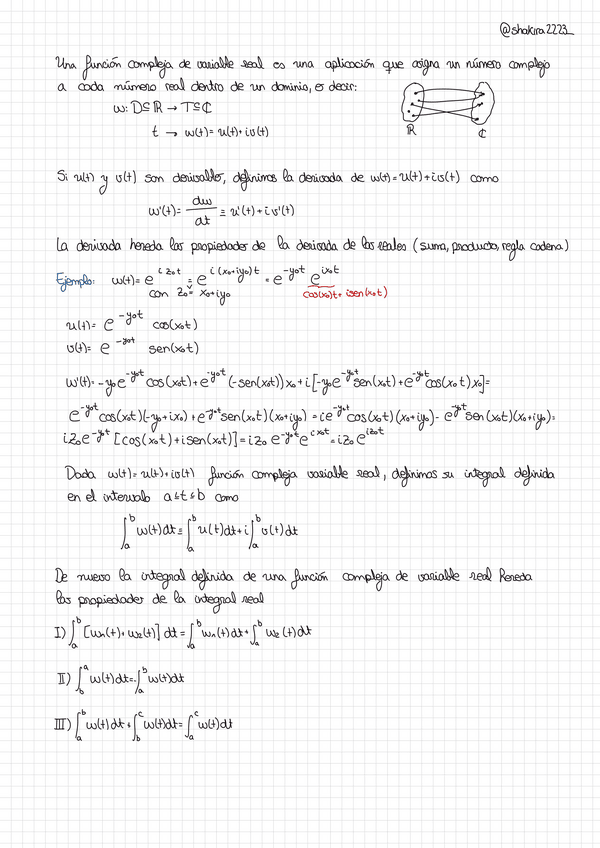 @shakira2223_
Una función compleja de variable real es una aplicación que asigna un número complejo
a cada número real dentro de un dominio, es decir:
w: D⊆ℝ → T⊆ℂ
t → w(t)= u(t)+ iv(t)
ℝ ℂ
Si u(t) y v(t) son derivables, definimos la derivada de w(t)=u(t)+iv(t) como
w'(t)= dw/dt ≡ u'(t)+iv'(t)
La derivada hereda las propiedades de la derivada de las reales (suma, producto, regla cadena)
Ejemplo: w(t)= e^{iz₀t} = e^{i(x₀+iy₀)t} = e^{-y₀t} e^{ix₀t}
con z₀ = x₀+iy₀ cos(x₀)t+ isen(x₀t)
u(t)= e^{-y₀t} cos(x₀t)
v(t)= e^{-y₀t} sen(x₀t)
w'(t)= -y₀e^{-y₀t} cos(x₀t)+e^{-y₀t}(-sen(x₀t))x₀+i[-y₀e^{-y₀t}sen(x₀t)+e^{-y₀t}cos(x₀t)x₀]=
e^{-y₀t}cos(x₀t)(-y₀+ix₀)+e^{-y₀t}sen(x₀t)(x₀+iy₀) = ie^{-y₀t}cos(x₀t)(x₀+iy₀)- e^{-y₀t}sen(x₀t)(x₀+iy₀)=
iz₀e^{-y₀t}[cos(x₀t)+isen(x₀t)]=iz₀ e^{-y₀t}e^{ix₀t}=iz₀e^{iz₀t}
Dada w(t)=u(t)+iv(t) función compleja variable real, definimos su integral definida
en el intervalo a≤t≤b como
∫_a^b w(t)dt ≡ ∫_a^b u(t)dt+i∫_a^b v(t)dt
De nuevo la integral definida de una función compleja de variable real hereda
las propiedades de la integral real
I) ∫_a^b [w₁(t)+w₂(t)] dt = ∫_a^b w₁(t)dt+∫_a^b w₂(t)dt
II) ∫_b^a w(t)dt=-∫_a^b w(t)dt
III) ∫_a^b w(t)dt+∫_b^c w(t)dt=∫_a^c w(t)dt